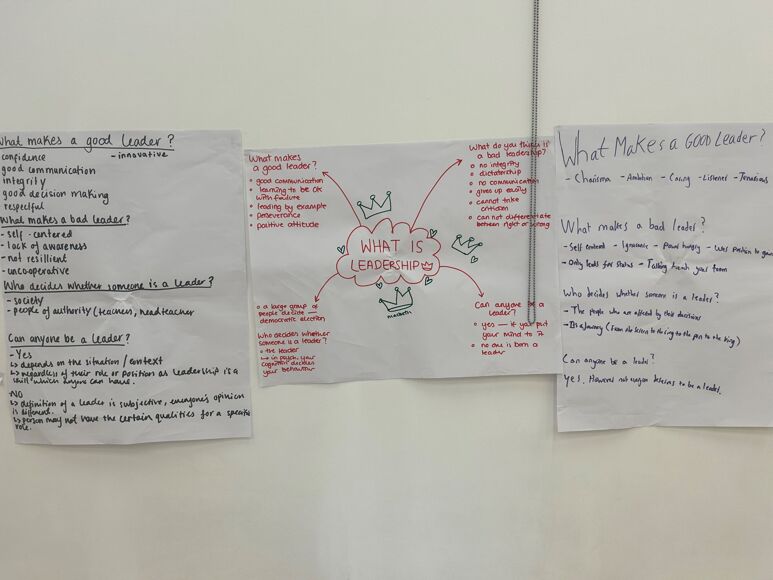 What makes a good leader?
confidence - innovative
good communication
integrity
good decision making
respectful
What makes a bad leader?
- self-centered
- lack of awareness
- not resillient
- uncooperative
Who decides whether someone is a leader?
- society
- people of authority (teachers, headteacher
Can anyone be a leader?
- Yes
↳ depends on the situation / context
↳ regardless of their role or position as leadership is a
skill which anyone can have.
- NO
↳ definition of a leader is subjective, everyone's opinion
is different.
↳ person may not have the certain qualities for a specific
role.
What makes
a good leader?
good communication
learning to be OK
with failure
leading by example
perseverance
positive attitude
What do you think is
a bad leadership?
no integrity
dictatorship
no communication
gives up easily
cannot take
criticism
can not differentiate
between right or wrong
WHAT IS
LEADERSHIP
macbeth
a large group of
people decide —
democratic election
Who decides whether
someone is a leader?
the leader
↳ in psych, your
cognition decides
your behaviour
Can anyone be a
leader?
yes — if you put
your mind to it
no one is born a
leader
What Makes a GOOD Leader?
- Charisma - Ambition - Caring - Listener - Tenacious
What makes a bad leader?
- Self centered - Ignorance - Power hungry - Uses position to gain
- Only leads for status - Talking down your team
Who decides whether someone is a leader?
- The people who are affected by their decisions
- It's a Journey (From the to the king to the to the king)
Can anyone be a leader?
Yes. However not everyone deserves to be a leader.